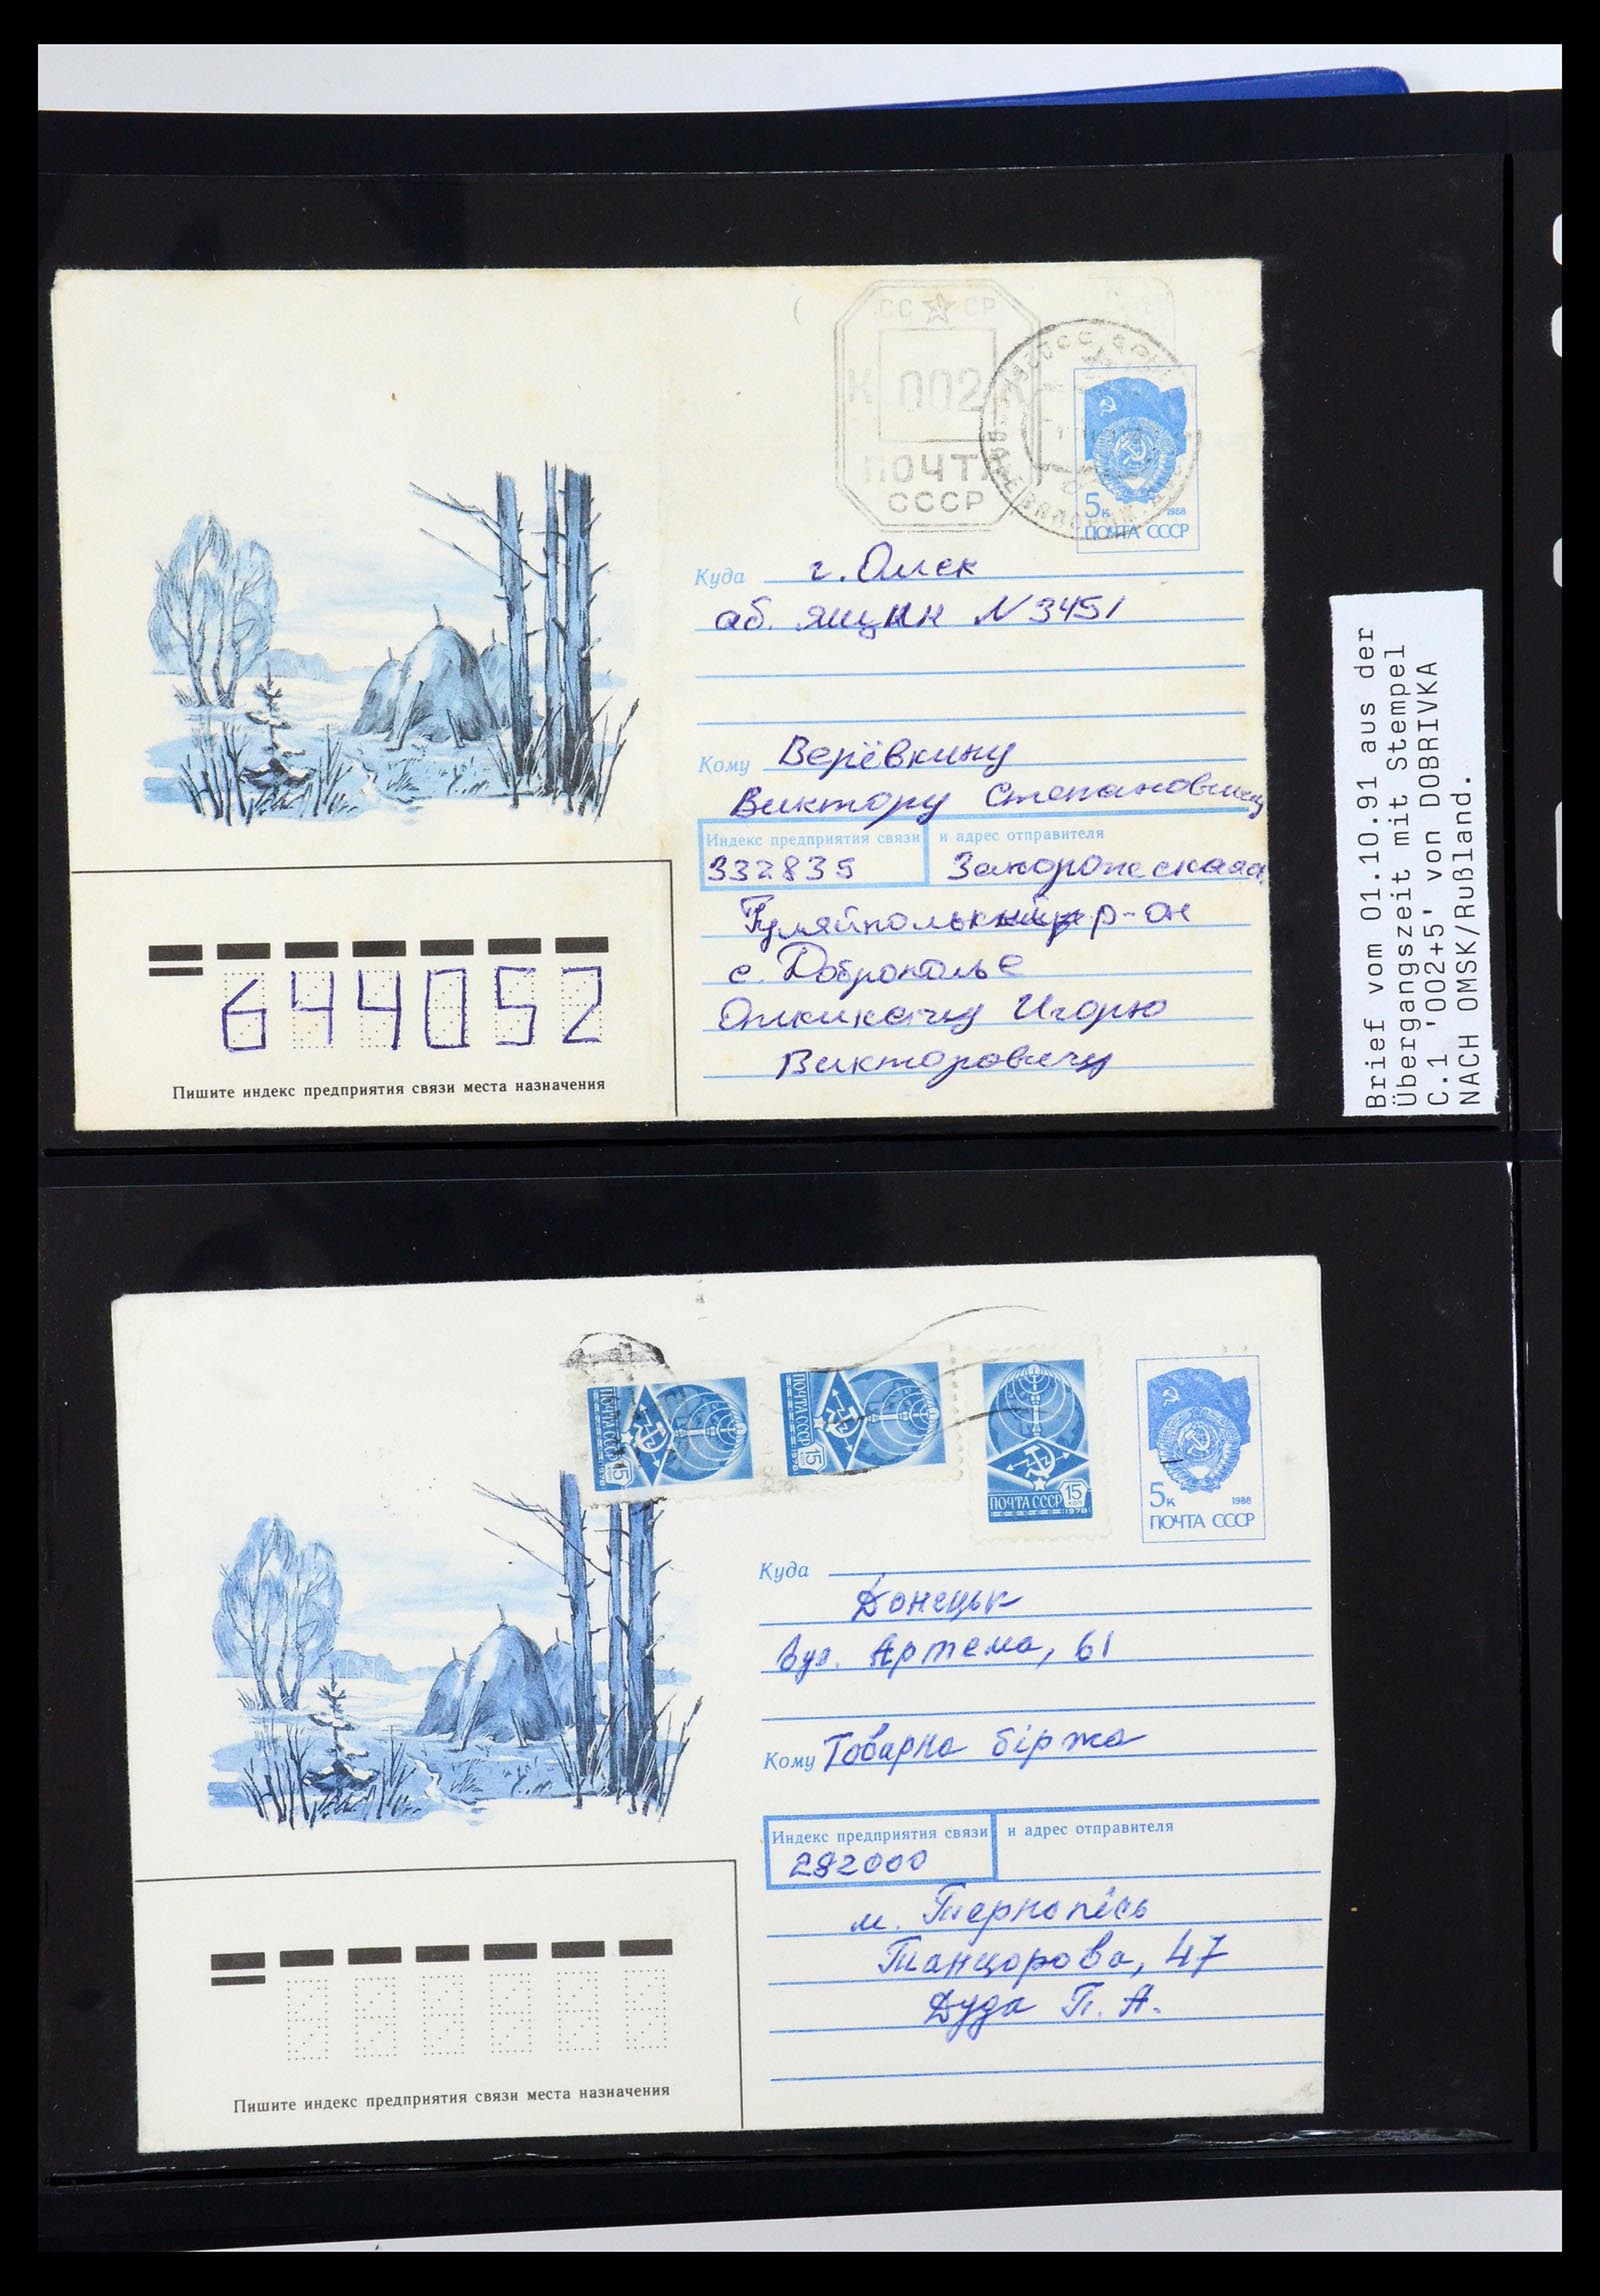 СС СР
К 002 К
ПОЧТА
СССР
5к 1988
ПОЧТА СССР
Куда г. Омск
аб. ящик N 3451
Кому Верёвкину
Виктору Степановичу
Индекс предприятия связи и адрес отправителя
332835
Гуляйпольский р-он
с. Доброполье
Игорю
Викторовичу
644052
Пишите индекс предприятия связи места назначения
Brief vom 01.10.91 aus der
Übergangszeit mit Stempel
C.1 '002+5' von DOBRIVKA
NACH OMSK/Rußland.
ПОЧТА СССР 15 коп 1978
ПОЧТА СССР 15 коп 1978
ПОЧТА СССР 15 коп 1978
5к 1988
ПОЧТА СССР
Куда
Донецьк
вул. Артема, 61
Кому Товарна біржа
Индекс предприятия связи и адрес отправителя
282000
м. Тернопіль
Танцорова, 47
Дуда П. А.
Пишите индекс предприятия связи места назначения